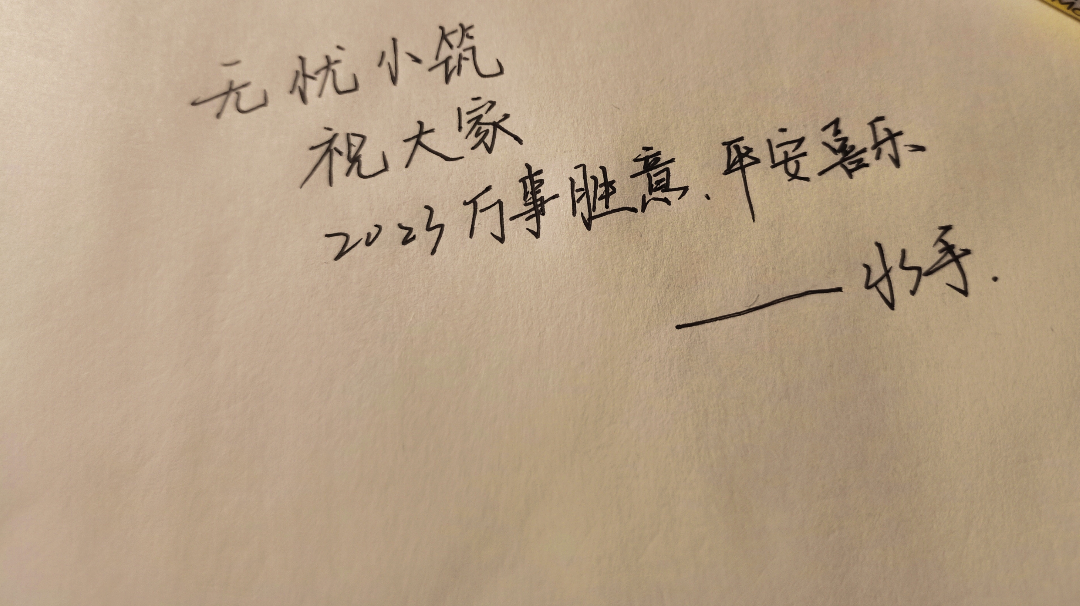 无忧小筑
祝大家
2023万事胜意.平安喜乐
——水手.